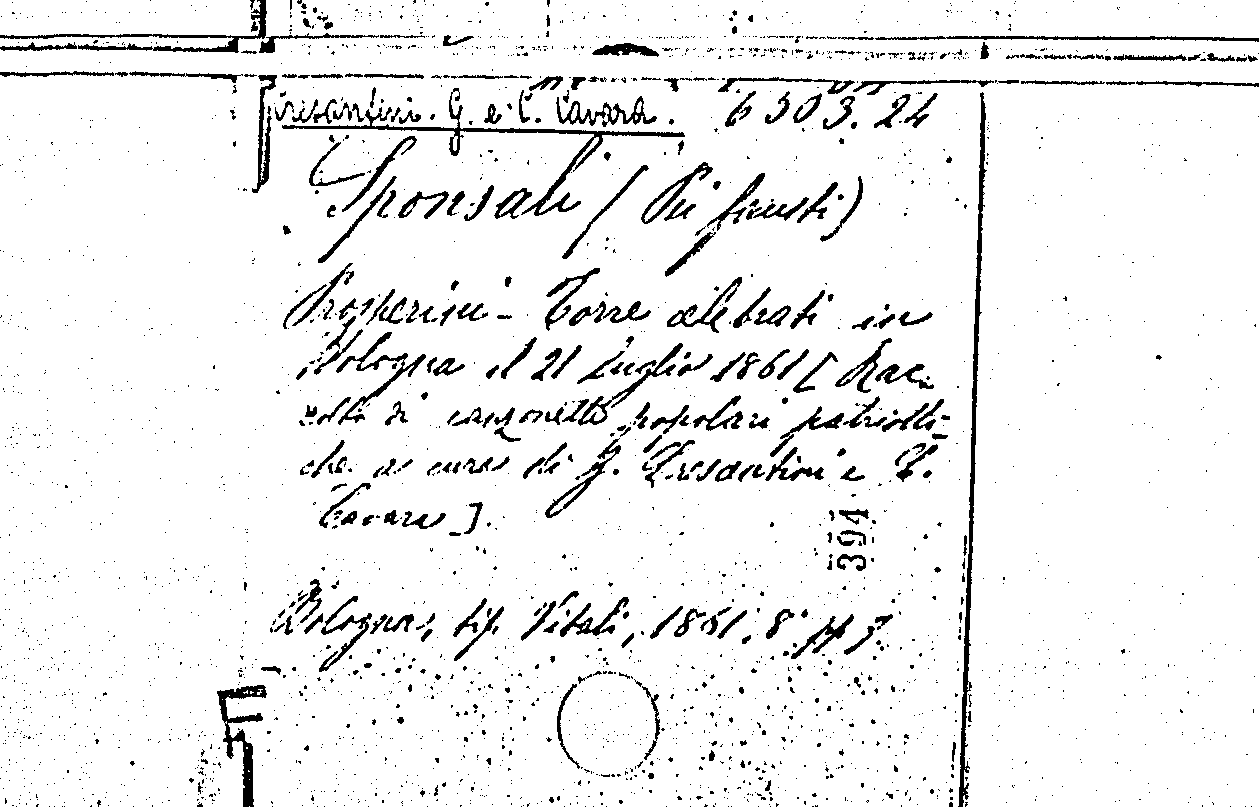 Tresantini. G. e C. Cavara. 6303.24
Sponsali (Pei fausti)
Prosperini - Torre celebrati in
Bologna il 21 Luglio 1861 [Rac-
colta di canzonette popolari patriotti-
che a cura di G. Tresantini e C.
Cavara].
394
Bologna, tip. Vitali, 1861. 8° pp 7.